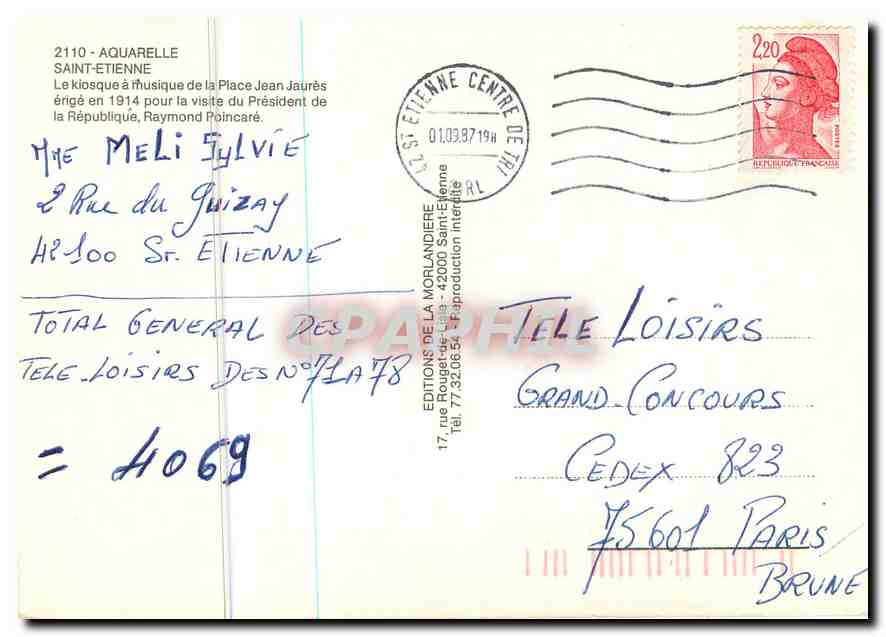 2110 - AQUARELLE
SAINT-ETIENNE
Le kiosque à musique de la Place Jean Jaurès
érigé en 1914 pour la visite du Président de
la République, Raymond Poincaré.
Mme MELI SYLVIE
2 Rue du Guizay
42100 St. ETIENNE
TOTAL GENERAL DES
TELE-LOISIRS DES N° 71 A 78
= 4069
42 ST ETIENNE CENTRE DE TRI
01.09.87 19H
2,20
POSTES
REPUBLIQUE FRANÇAISE
EDITIONS DE LA MORLANDIERE
17, rue Rouget-de-Lisle - 42000 Saint-Etienne
Tél. 77.32.06.54 - Reproduction interdite
CPAPHIL
TELE LOISIRS
GRAND-CONCOURS
CEDEX 823
75601 PARIS
BRUNE